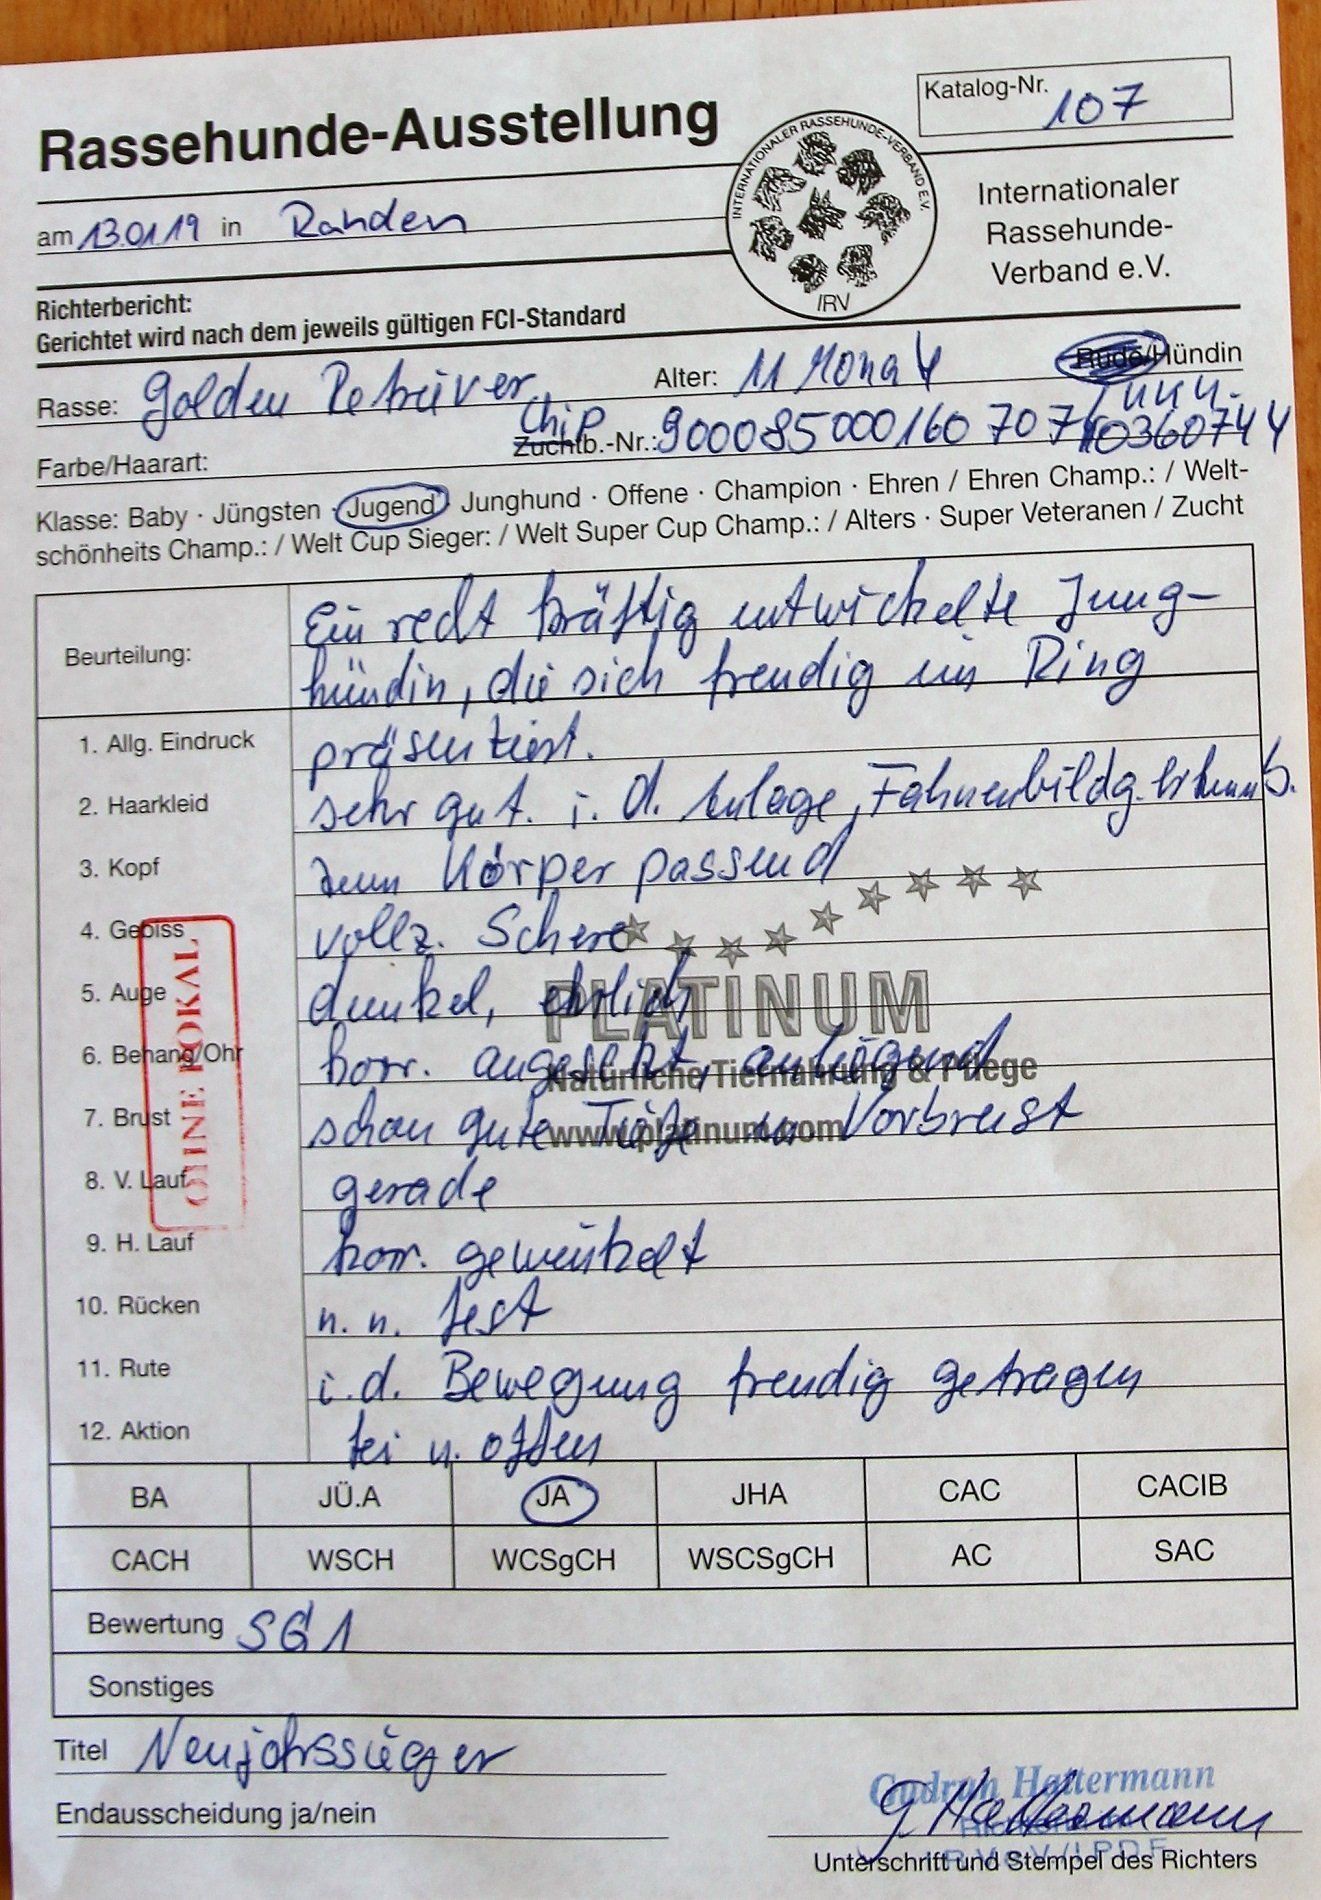 Rassehunde-Ausstellung
Katalog-Nr. 107
INTERNATIONALER RASSEHUNDE-VERBAND E.V.
IRV
Internationaler
Rassehunde-
Verband e.V.
am 13.01.19 in Rahden
Richterbericht:
Gerichtet wird nach dem jeweils gültigen FCI-Standard
Rasse: Golden Retriever Alter: 11 Monat Rüde/Hündin
Chip
Farbe/Haarart: Zuchtb.-Nr.: 900085000160707
Klasse: Baby · Jüngsten · Jugend · Junghund · Offene · Champion · Ehren / Ehren Champ.: / Welt-
schönheits Champ.: / Welt Cup Sieger: / Welt Super Cup Champ.: / Alters · Super Veteranen / Zucht
Beurteilung: Ein recht kräftig entwickelte Jung-
hündin, die sich freudig im Ring
1. Allg. Eindruck präsentiert.
2. Haarkleid sehr gut. i. d. Anlage, Fahnenbildg. erkennb.
3. Kopf zum Körper passend
4. Gebiss vollz. Schere
5. Auge dunkel, ehrlich
6. Behang/Ohr korr. angesetzt, anliegend
7. Brust schon gute Tiefe u. Vorbrust
8. V. Lauf gerade
9. H. Lauf korr. gewinkelt
10. Rücken n. n. fest
11. Rute i.d. Bewegung freudig getragen
12. Aktion frei u. offen
OHNE POKAL
PLATINUM
Natürliche Tiernahrung & Pflege
www.platinum.com
BA JÜ.A JA JHA CAC CACIB
CACH WSCH WCSgCH WSCSgCH AC SAC
Bewertung SG 1
Sonstiges
Titel Neujahrssieger
Endausscheidung ja/nein
Gudrun Hattermann
G. Hattermann
Unterschrift und Stempel des Richters